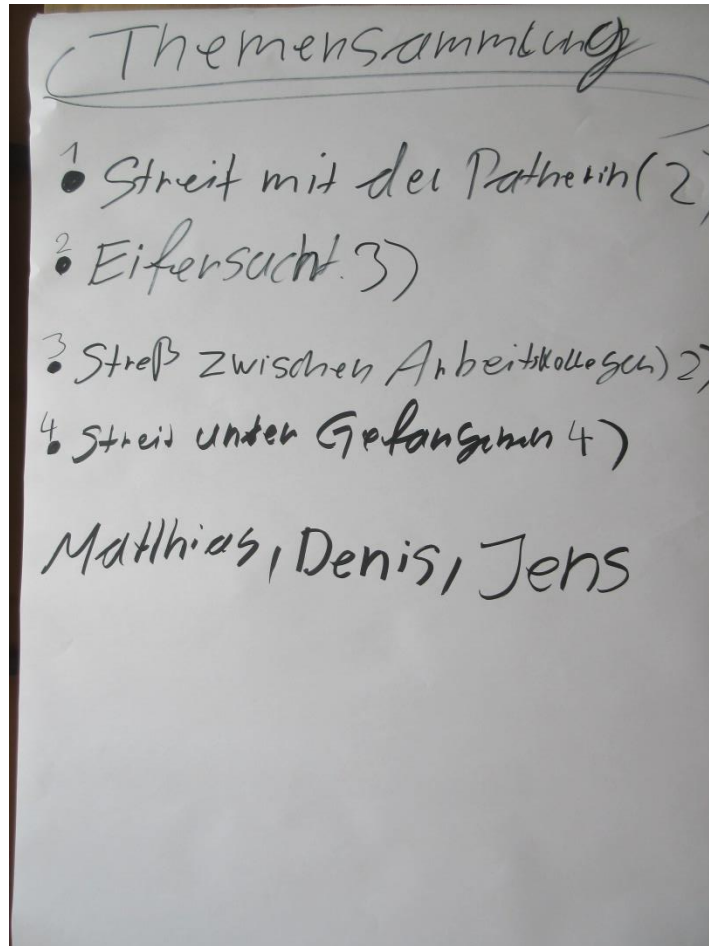 Themensammlung
1 • Streit mit der Partnerin (2)
2 • Eifersucht. 3)
3 • Streß zwischen Arbeitskollegen) 2)
4 • Streit unter Gefangenen 4)
Matthias, Denis, Jens